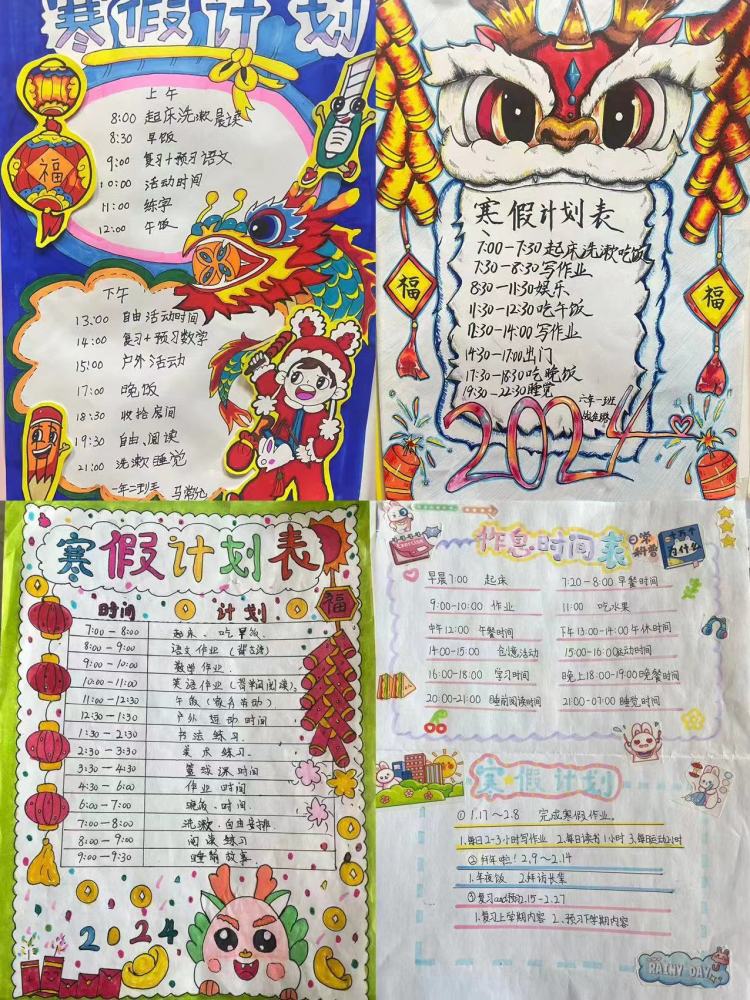 寒假计划
上午
8:00 起床洗漱晨读
8:30 早饭
9:00 复习+预习语文
10:00 活动时间
11:00 练字
12:00 午饭
福
下午
13:00 自由活动时间
14:00 复习+预习数学
15:00 户外活动
17:00 晚饭
18:30 收拾房间
19:30 自由、阅读
21:00 洗漱睡觉
寒假计划表
7:00-7:30起床洗漱吃饭
7:30-8:30写作业
8:30-11:30娱乐
11:30-12:30吃午饭
12:30-14:00写作业
14:30-17:00出门
17:30-18:30吃晚饭
19:30-22:30睡觉
六年一班
福
福
2024
寒假计划表
福
时间 计划
7:00-8:00 起床、吃早饭.
8:00-9:00 语文作业
9:00-10:00 数学作业.
10:00-11:00 英语作业
11:00-12:30 午饭
12:30-1:30 户外 运动时间
1:30-2:30 书法练习.
2:30-3:30 美术练习.
3:30-4:30 篮球课时间
4:30-6:00 作业 时间
6:00-7:00 晚饭.时间.
7:00-8:00 洗漱.自由安排.
8:00-9:00 阅读练习
9:00-9:30 睡前故事.
2024
作息时间表
日常
科普
为什么
早晨7:00 起床 7:20-8:00早餐时间
9:00-10:00 作业 11:00 吃水果
中午12:00 午餐时间 下午13:00-14:00午休时间
14:00-15:00 创意活动 15:00-16:00运动时间
16:00-18:00 学习时间 晚上18:00-19:00晚餐时间
20:00-21:00睡前阅读时间 21:00-07:00睡觉时间
寒假计划
① 1.17~2.8 完成寒假作业。
1.每日2-3小时写作业 2.每日读书1小时 3.每日运动2小时
② 拜年啦! 2.9~2.14
1.年夜饭 2.拜访长辈
③复习and预习2.15-2.27
1.复习上学期内容 2.预习下学期内容
RAINY DAY